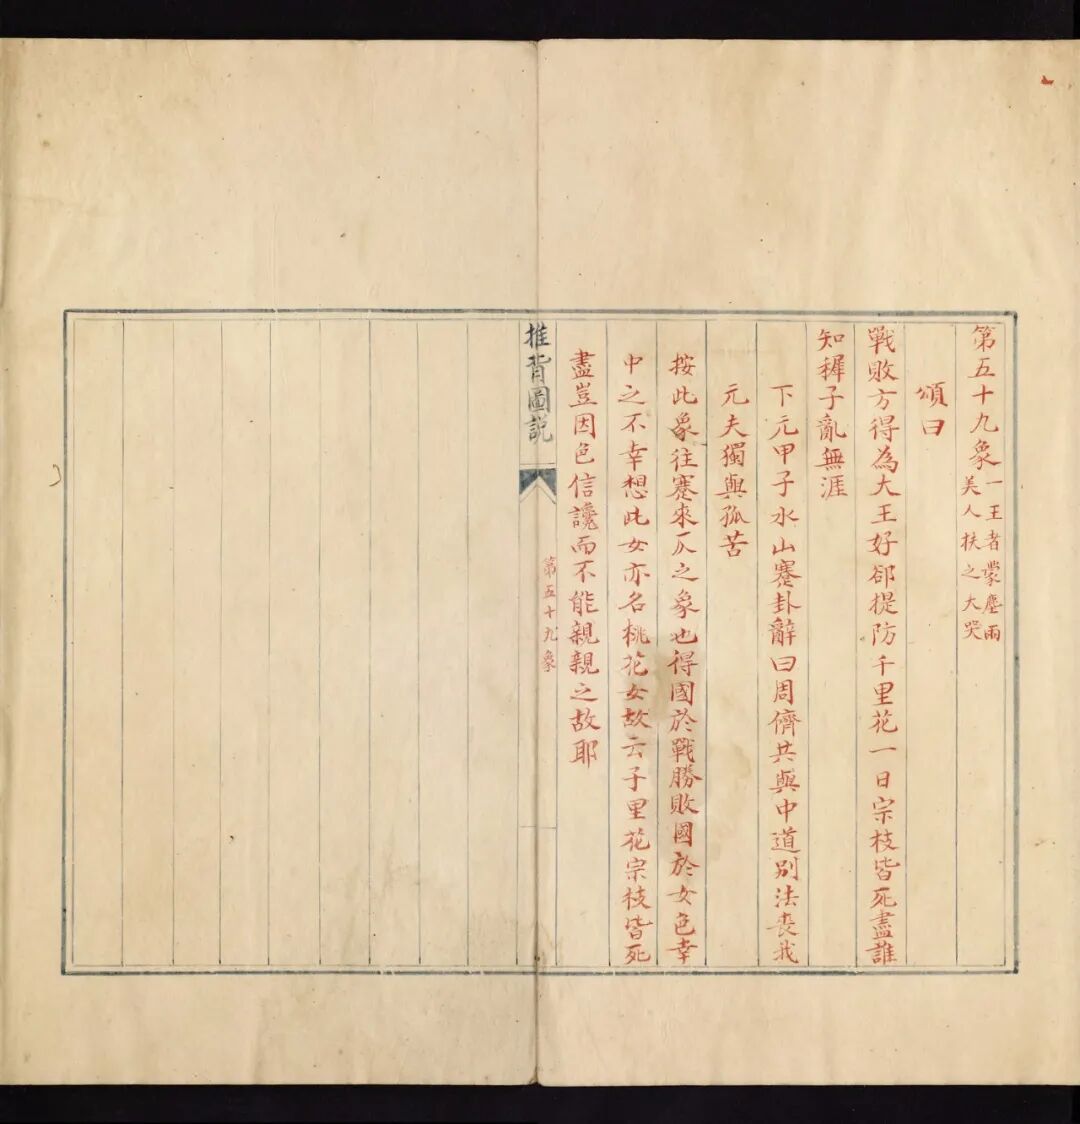 第五十九象 一王者蒙塵兩
美人扶之大哭
頌曰
戰敗方得為大王好郤提防千里花一日宗枝皆死盡誰
知稺子亂無涯
下元甲子水山蹇卦辭曰周儕共與中道別法喪我
元夫獨與孤苦
按此象往蹇來仄之象也得國於戰勝敗國於女色幸
中之不幸想此女亦名桃花女故云子里花宗枝皆死
盡豈因色信讒而不能親親之故耶
推背圖説
第五十九象